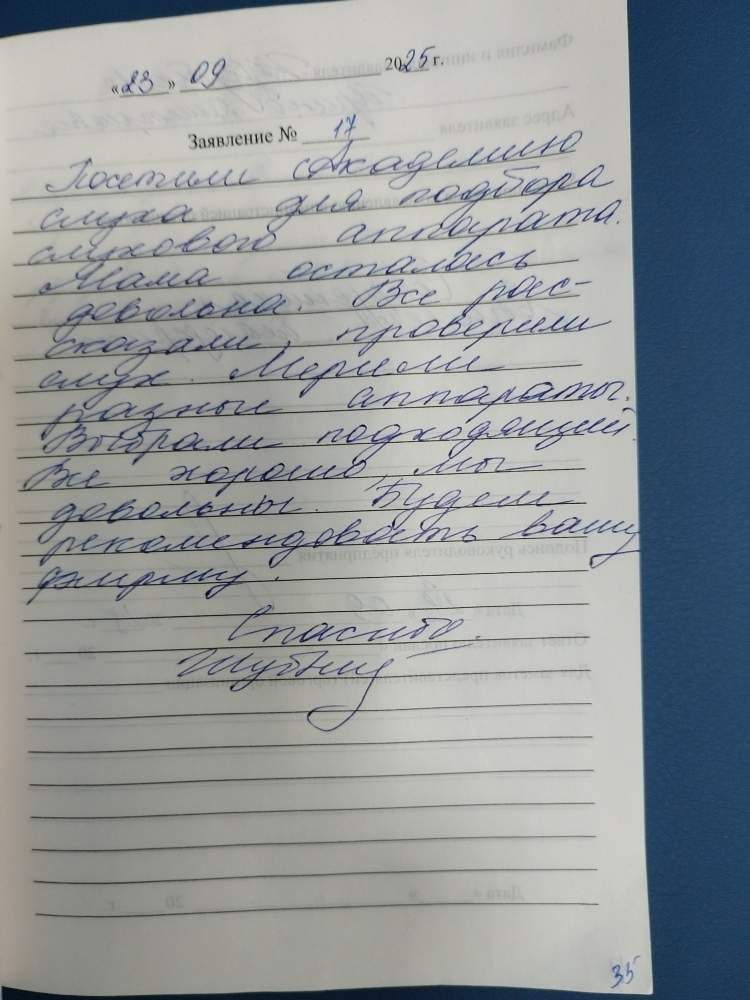 «23» 09 2025 г.
Заявление № 17
Посетили Академию
слуха для подбора
слухового аппарата.
Мама осталась
довольна. Все рас-
сказали, проверили
слух. Мерили
разные аппараты.
Выбрали подходящий.
Все хорошо, мы
довольны. Будем
рекомендовать вашу
фирму.
Спасибо.
35